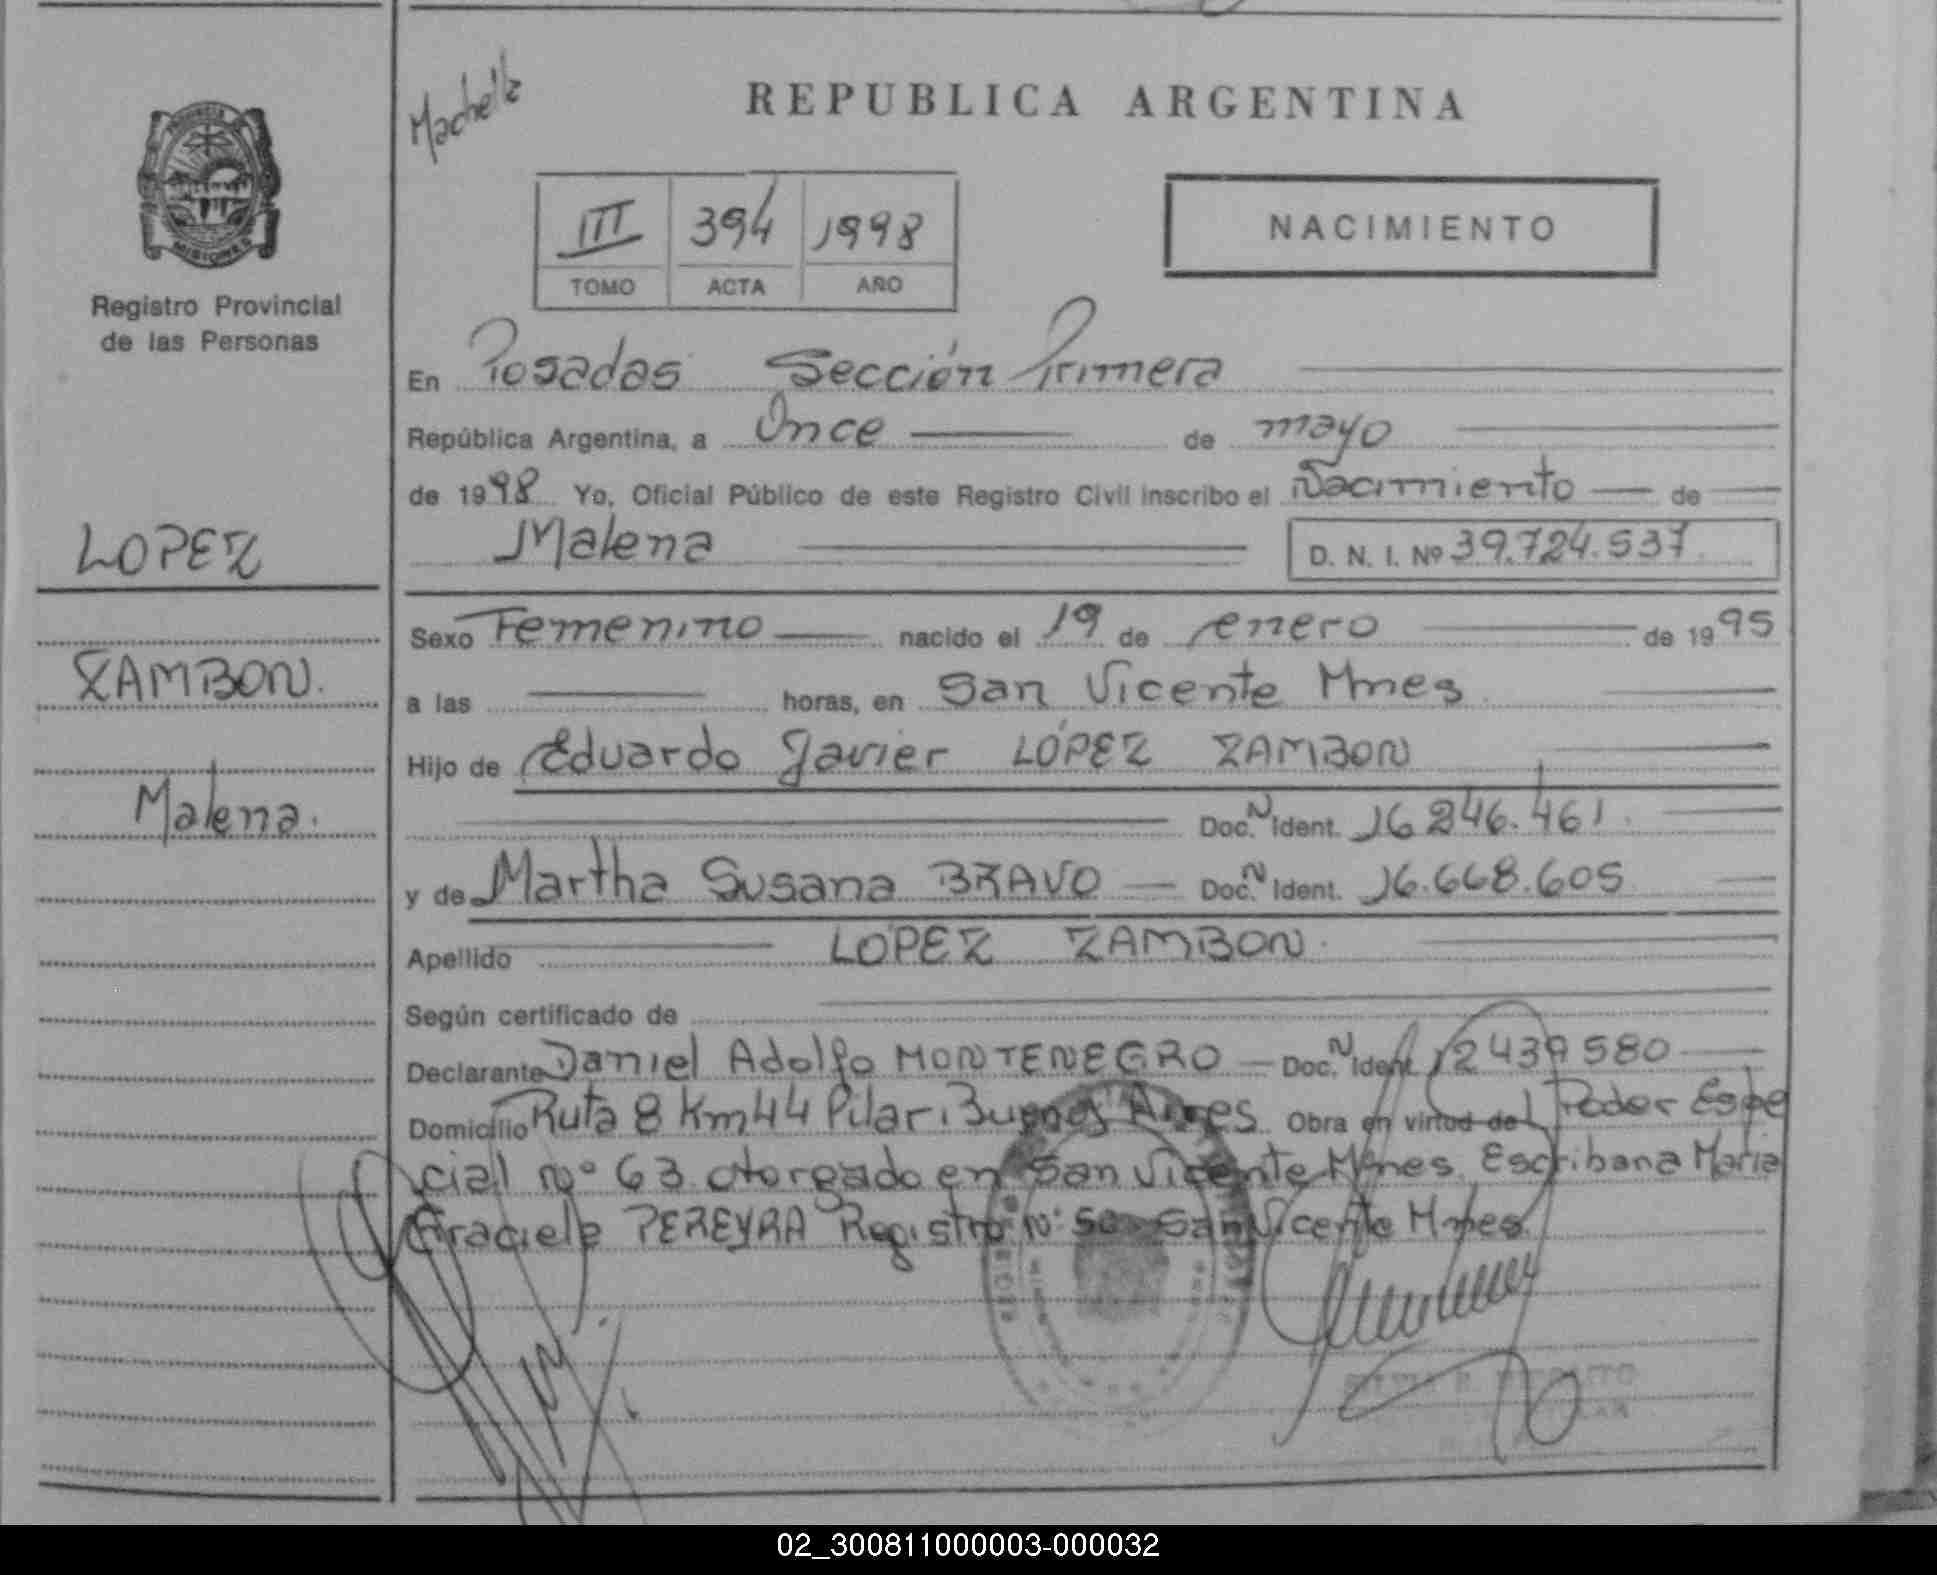 REPUBLICA ARGENTINA
PROVINCIA DE
MISIONES
Registro Provincial
de las Personas
III 394 1998
TOMO ACTA AÑO
NACIMIENTO
En Posadas Sección Primera
República Argentina, a Once de mayo
de 1998 Yo, Oficial Público de este Registro Civil inscribo el Nacimiento de
Malena D. N. I. Nº 39.724.537
LOPEZ
ZAMBON.
Malena.
Sexo Femenino nacido el 19 de enero de 1995
a las horas, en San Vicente Mnes
Hijo de Eduardo Javier LÓPEZ ZAMBON
Doc. N Ident. 16 246.461.
y de Martha Susana BRAVO Doc. N Ident. 16.668.605
Apellido LOPEZ ZAMBON.
Según certificado de
Declarante Daniel Adolfo MONTENEGRO Doc. N Ident. 12439580
Domicilio Ruta 8 Km 44 Pilar. Buenos Aires Obra en virtud del Poder Espe
cial nº 63 otorgado en San Vicente Mnes. Escribana Maria
Graciela PEREYRA Registro Nº 50 San Vicente Mnes.
02_300811000003-000032